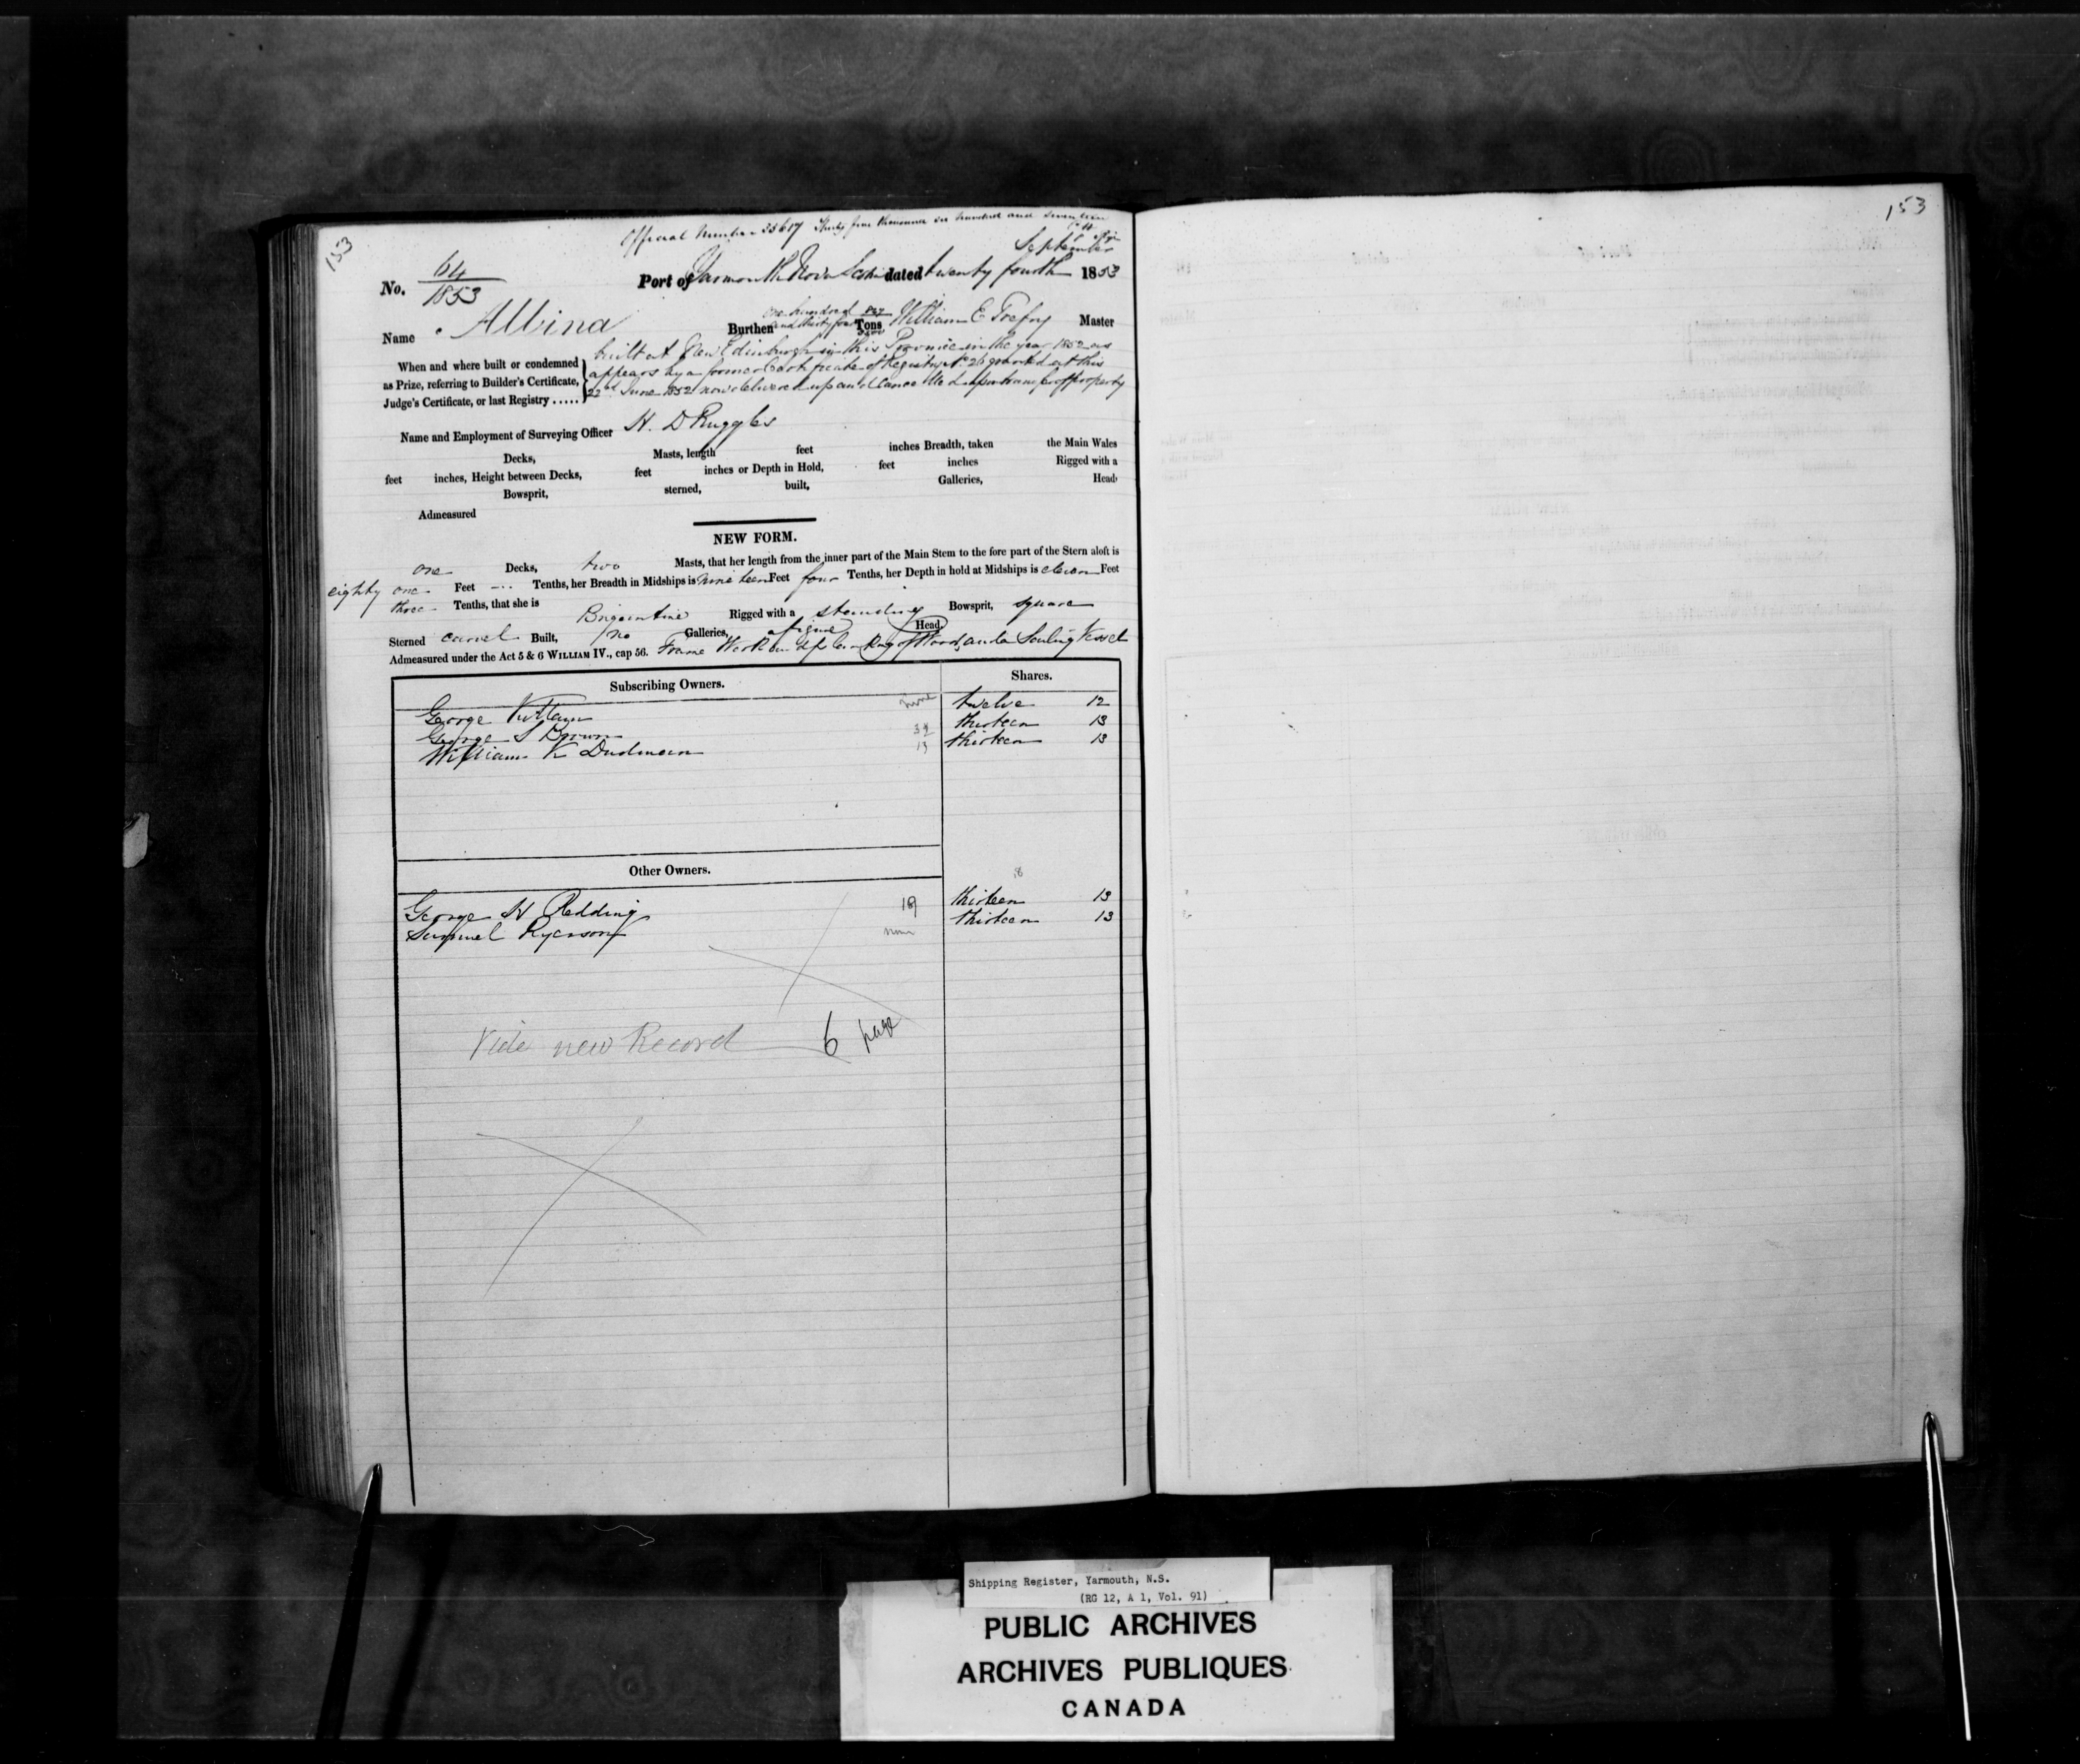 153
Official Number 35617 Thirty five thousand six hundred and seventeen
September
No. 64/1853 Port of Yarmouth Nova Scotia dated twenty fourth 1853
Name Albina Burthen one hundred and thirty four Tons William E Master
When and where built or condemned
as Prize, referring to Builder's Certificate,
Judge's Certificate, or last Registry .....
built at New Edinburgh in this Province in the year 1852 as
appears by a former Certificate of Registry No 26 granted at this
22nd June 1852 now delivered up and cancelled upon transfer of property
Name and Employment of Surveying Officer H. D Ruggles
Decks, Masts, length feet inches Breadth, taken the Main Wales
feet inches, Height between Decks, feet inches or Depth in Hold, feet inches Rigged with a
Bowsprit, sterned, built, Galleries, Head
Admeasured
NEW FORM.
one Decks, two Masts, that her length from the inner part of the Main Stem to the fore part of the Stern aloft is
eighty one Feet --- Tenths, her Breadth in Midships is nineteen Feet four Tenths, her Depth in hold at Midships is eleven Feet
three Tenths, that she is Brigantine Rigged with a standing Bowsprit, square
Sterned carvel Built, no Galleries, a figure Head
Admeasured under the Act 5 & 6 WILLIAM IV., cap 56. Frame Work and planking of Wood, and a Sailing Vessel
Subscribing Owners. Shares.
George Killam none twelve 12
George S Brown 32 thirteen 13
William K Dudman 13 thirteen 13
Other Owners.
18
George H Redding 19 thirteen 13
Samuel Ryerson none thirteen 13
Vide new Record 6 page
153
Shipping Register, Yarmouth, N.S.
(RG 12, A 1, Vol. 91)
PUBLIC ARCHIVES
ARCHIVES PUBLIQUES
CANADA